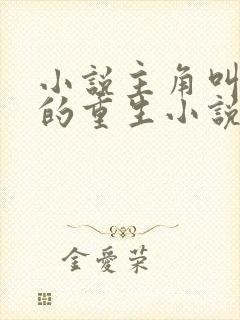 小說主角叫
的重生小說
金愛荣